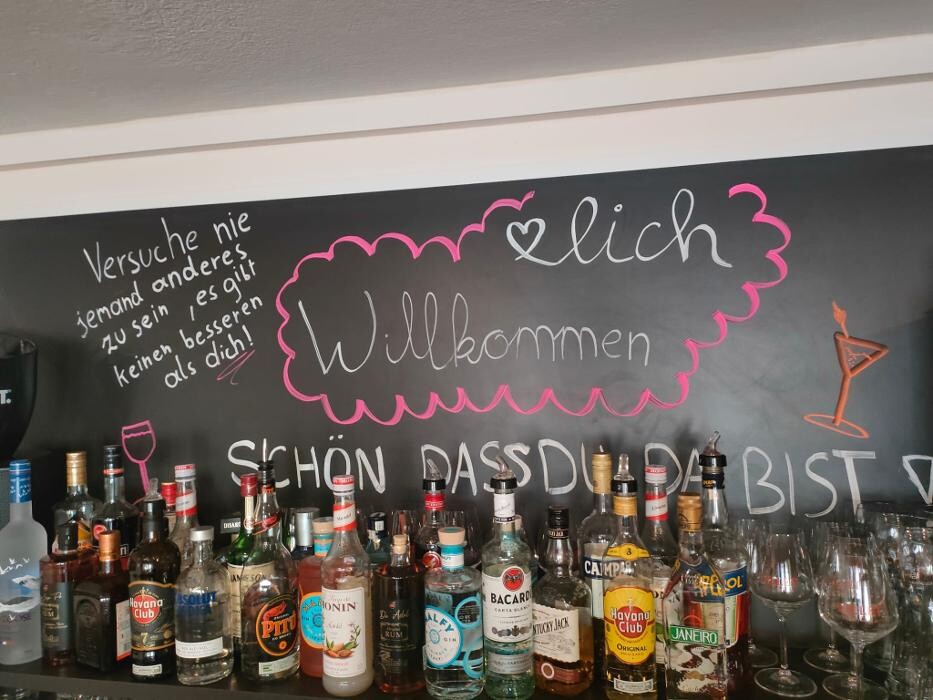 Versuche nie
jemand anderes
zu sein, es gibt
keinen besseren
als dich!
♡lich
Willkommen
SCHÖN DASS DU DA BIST
Havana
Club
7
ABSOLUT
JAMESON
PITÚ
MONIN
RUM
MALFY
GIN
BACARDI
CARTA BLANCA
KENTUCKY JACK
CAMPARI
Havana
Club
ORIGINAL
JANEIRO